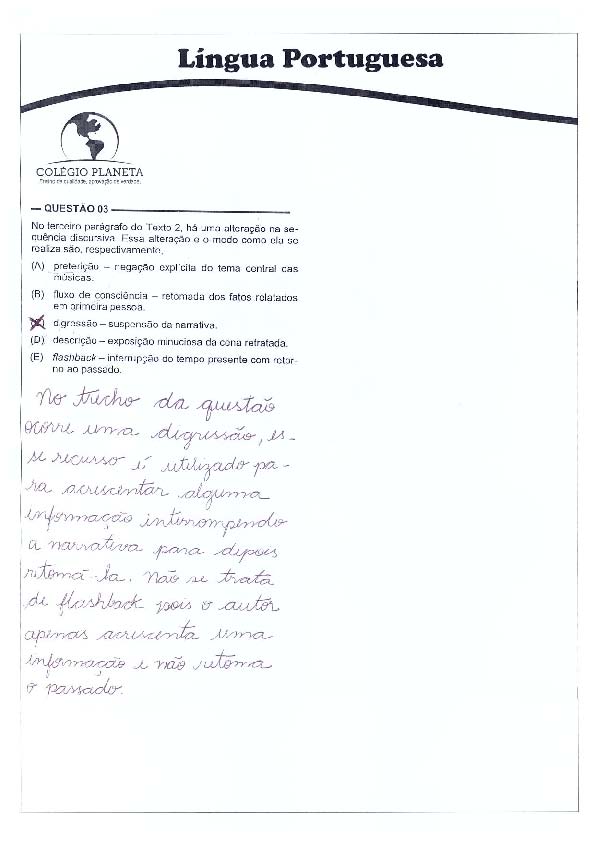 Língua Portuguesa
COLÉGIO PLANETA
Ensino de qualidade, aprovação de verdade.
— QUESTÃO 03 —
No terceiro parágrafo do Texto 2, há uma alteração na se-
quência discursiva. Essa alteração e o modo como ela se
realiza são, respectivamente,
(A) preterição – negação explícita do tema central das
músicas.
(B) fluxo de consciência – retomada dos fatos relatados
em primeira pessoa.
digressão – suspensão da narrativa.
(D) descrição – exposição minuciosa da cena retratada.
(E) flashback – interrupção do tempo presente com retor-
no ao passado.
No trecho da questão
ocorre uma digressão, es-
se recurso é utilizado pa-
ra acrescentar alguma
informação interrompendo
a narrativa para depois
retomá-la. Não se trata
de flashback pois o autor
apenas acrescenta uma
informação e não retoma
o passado.